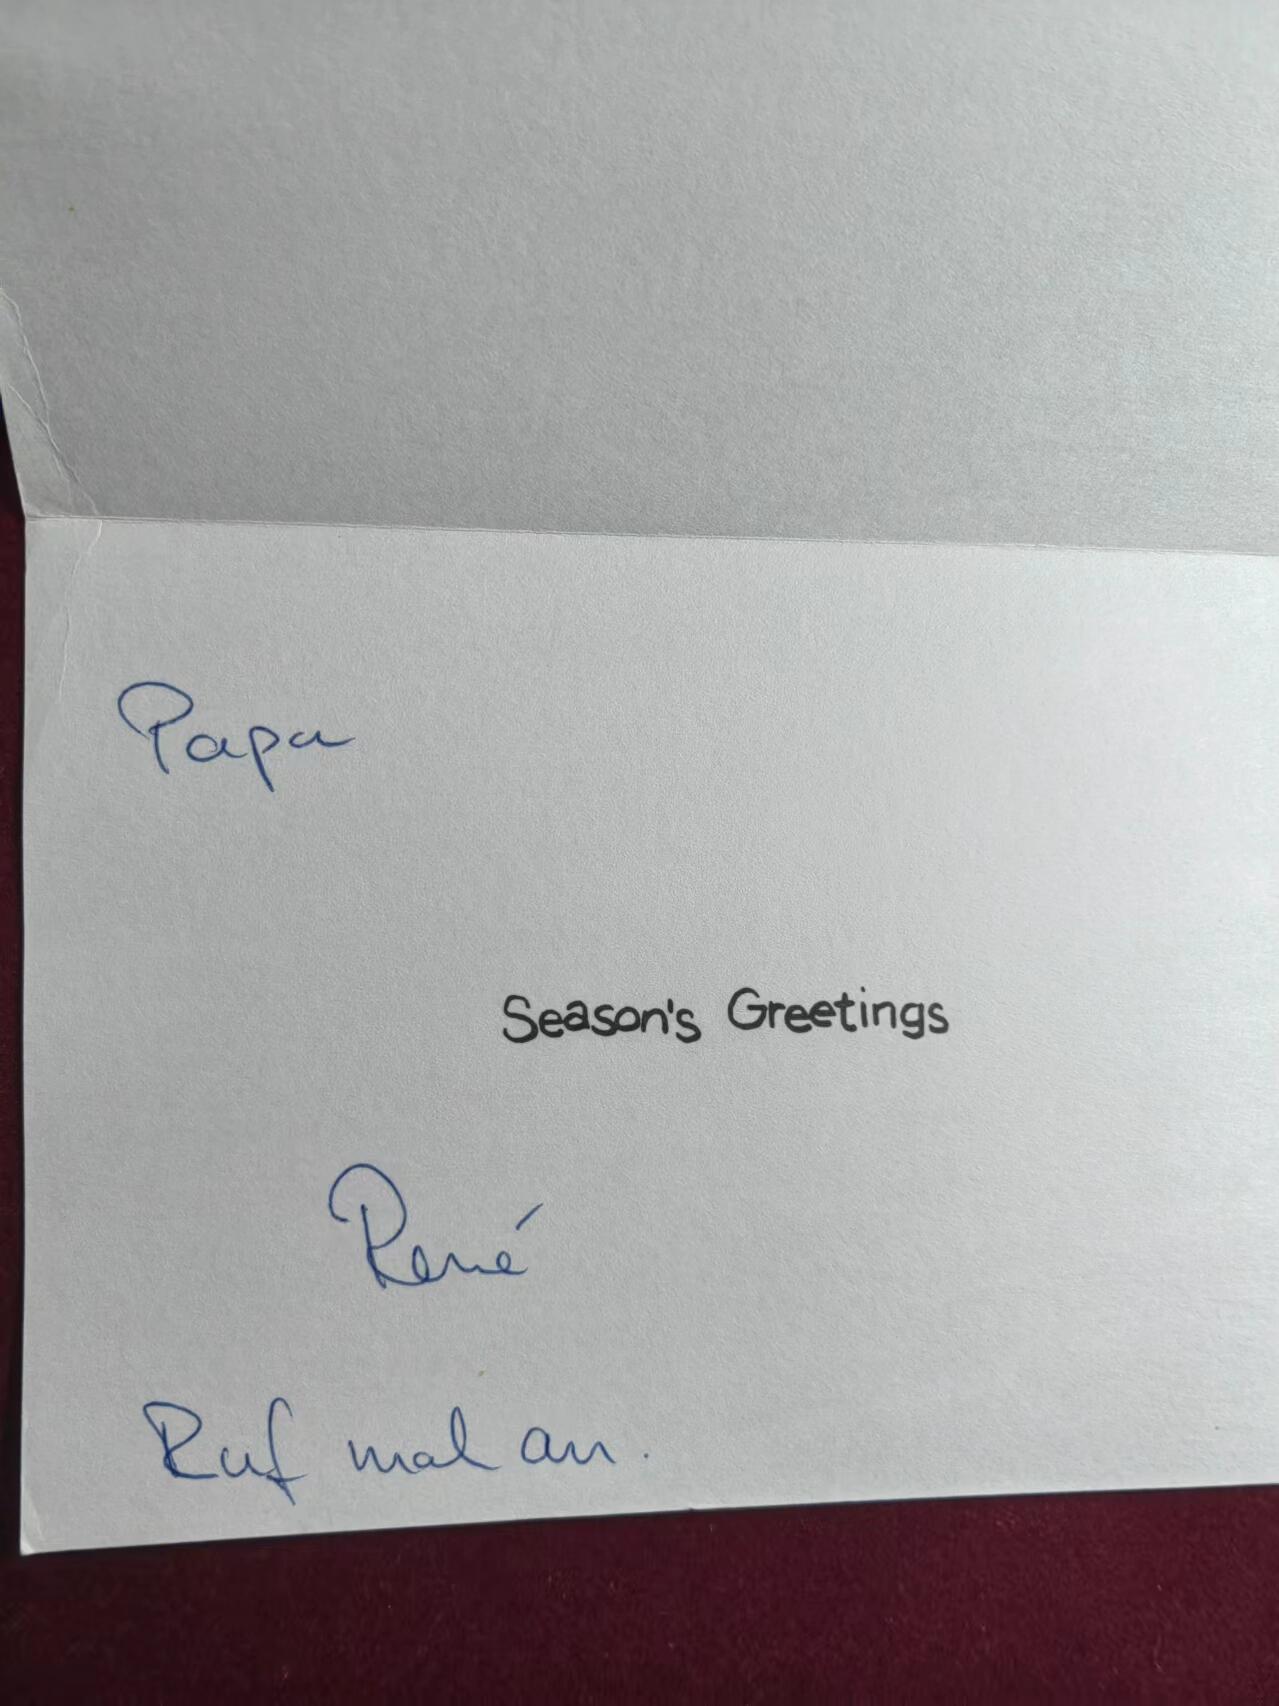 Papa
Season's Greetings
René
Ruf mal an.